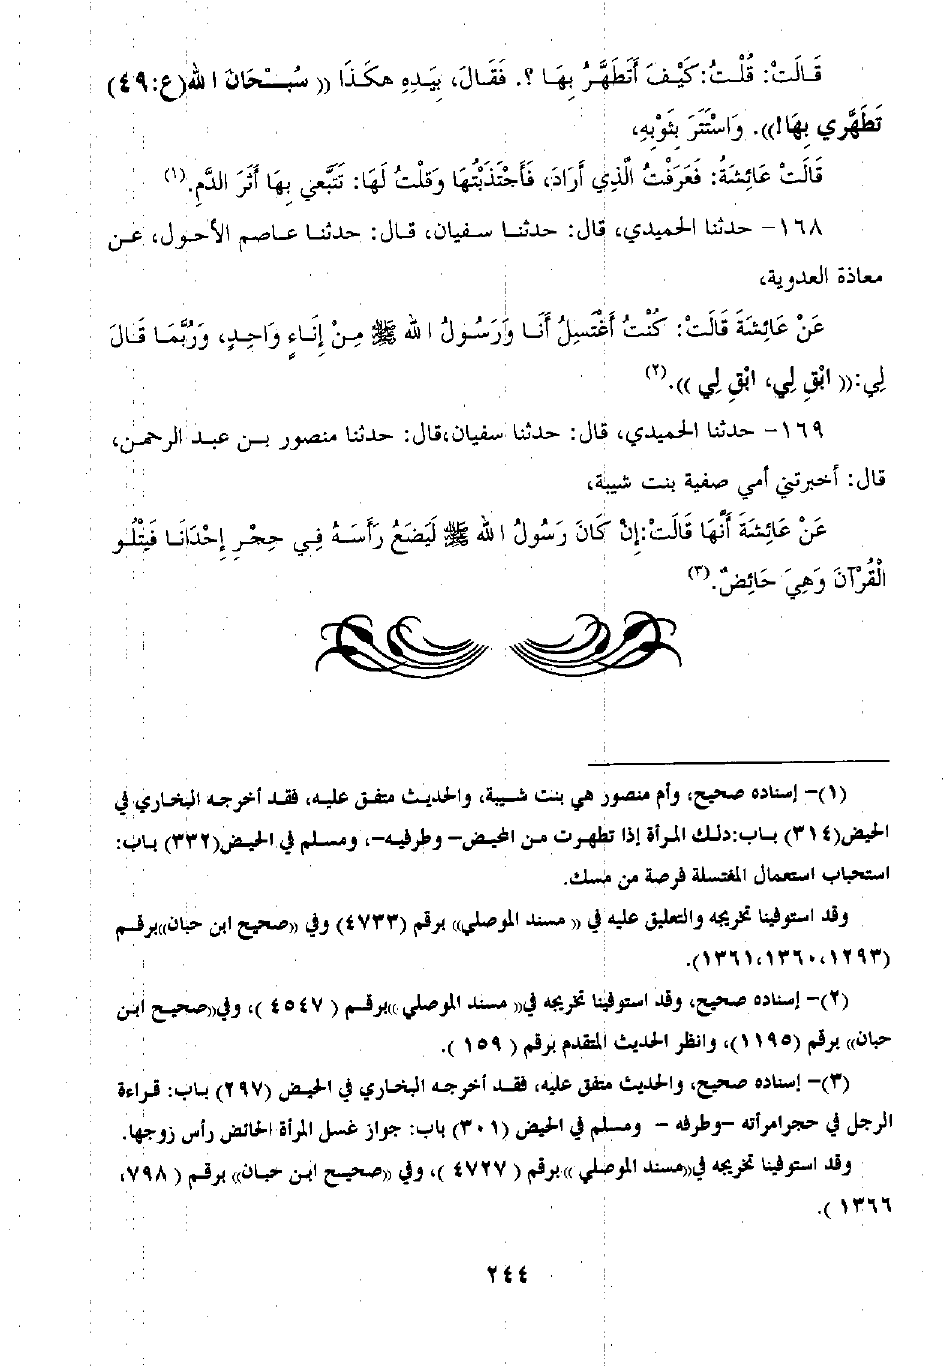 قَالَتْ: قُلْتُ: كَيْفَ أَتَطَهَّرُ بِهَا ؟. فَقَالَ، بِيَدِهِ هكَذَا (( سُبْحَانَ الله(ع:٤٩)
تَطَهَّرِي بِهَا!)). وَاسْتَتَرَ بِثَوْبِهِ،
قَالَتْ عَائِشَةُ: فَعَرَفْتُ الَّذِي أَرَادَ، فَأَجْتَذَبْتُهَا وَقلْتُ لَهَا: تَتَبَّعي بِهَا أَثَرَ الدَّمِ.(١)
١٦٨- حدثنا الحميدي، قال: حدثنا سفيان، قال: حدثنا عاصم الأحول، عن
معاذة العدوية،
عَنْ عَائِشَةَ قَالَتْ: كُنْتُ أَغْتَسِلُ أَنَا وَرَسُولُ الله ﷺ مِنْ إِنَاءٍ وَاحِدٍ، وَرُبَّمَا قَالَ
لِي:(( ابْقِ لِي، ابْقِ لِي )).(٢)
١٦٩- حدثنا الحميدي، قال: حدثنا سفيان،قال: حدثنا منصور بن عبد الرحمن،
قال: أخبرتني أمي صفية بنت شيبة،
عَنْ عَائِشَةَ أَنَّهَا قَالَتْ:إِنْ كَانَ رَسُولُ الله ﷺ لَيَضَعُ رَأسَهُ فِي حِجْرِ إِحْدَانَا فَيَتْلُو
الْقُرْآنَ وَهِيَ حَائِضٌ.(٣)
(١)- إسناده صحيح، وأم منصور هي بنت شيبة، والحديث متفق عليه، فقد أخرجه البخاري في
الحيض(٣١٤) باب:دلك المرأة إذا تطهرت من المحيض- وطرفيه-، ومسلم في الحيض(٣٣٢) باب:
استحباب استعمال المغتسلة فرصة من مسك.
وقد استوفينا تخريجه والتعليق عليه في (( مسند الموصلي)) برقم (٤٧٣٣) وفي ((صحيح ابن حبان))برقم
(١٢٩٣،١٣٦٠،١٣٦١).
(٢)- إسناده صحيح، وقد استوفينا تخريجه في(( مسند الموصلي ))برقم ( ٤٥٤٧ )، وفي((صحيح ابن
حبان)) برقم (١١٩٥)، وانظر الحديث المتقدم برقم ( ١٥٩ ).
(٣)- إسناده صحيح، والحديث متفق عليه، فقد أخرجه البخاري في الحيض (٢٩٧) باب: قراءة
الرجل في حجرامرأته -وطرفه - ومسلم في الحيض (٣٠١) باب: جواز غسل المرأة الحائض رأس زوجها.
وقد استوفينا تخريجه في((مسند الموصلي ))برقم ( ٤٧٢٧ )، وفي ((صحيح ابن حبان)) برقم ( ٧٩٨،
١٣٦٦ ).
٢٤٤